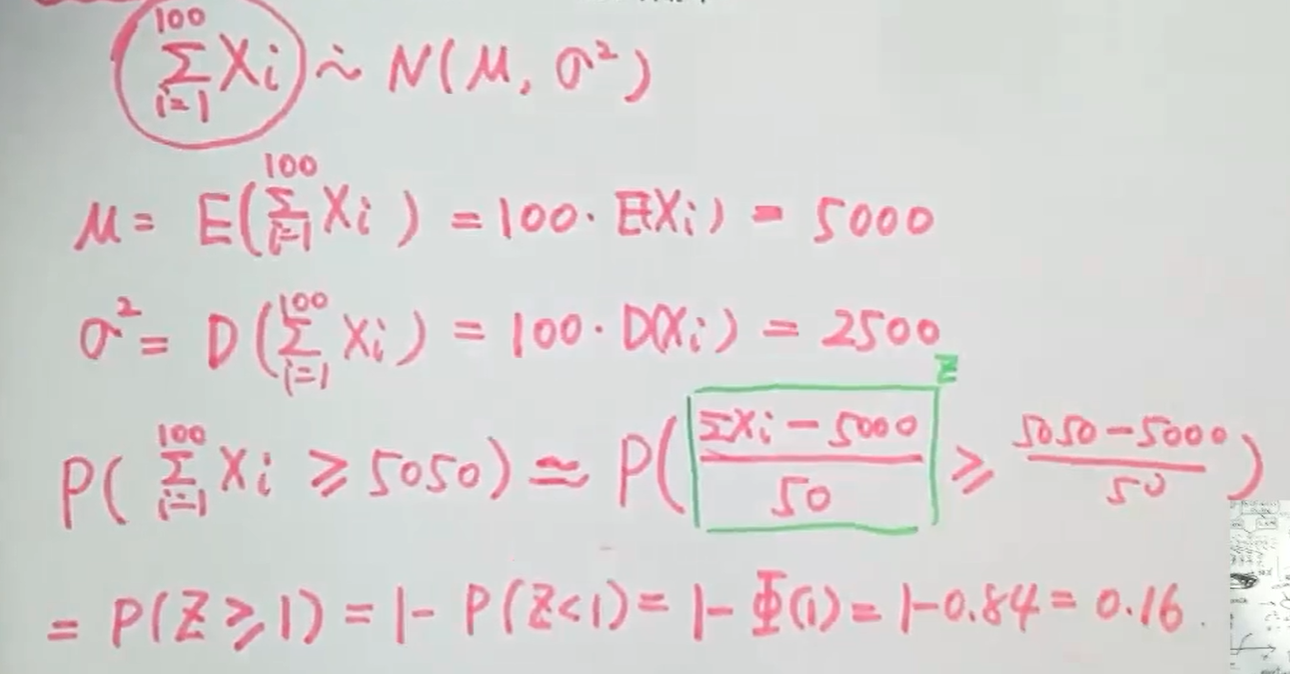 $\sum_{i=1}^{100} X_i \stackrel{\cdot}{\sim} N(\mu, \sigma^2)$
$\mu = E(\sum_{i=1}^{100} X_i) = 100 \cdot E(X_i) = 5000$
$\sigma^2 = D(\sum_{i=1}^{100} X_i) = 100 \cdot D(X_i) = 2500$
$P(\sum_{i=1}^{100} X_i \geq 5050) \simeq P(\boxed{\frac{\Sigma X_i - 5000}{50}}^{Z} \geq \frac{5050 - 5000}{50})$
$= P(Z \geq 1) = 1 - P(Z < 1) = 1 - \Phi(1) = 1 - 0.84 = 0.16.$